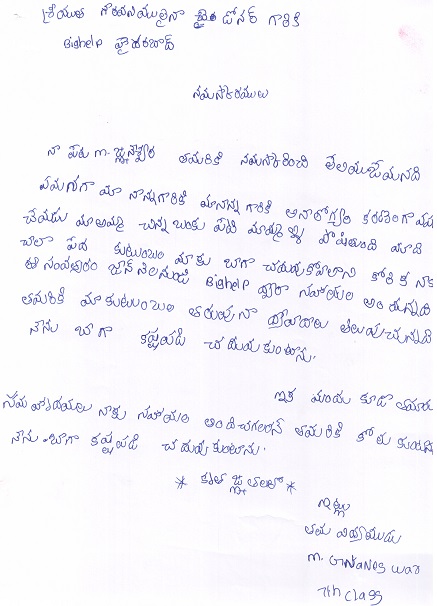 శ్రీయుత గౌరవనీయులైనా శ్రీ డోనర్ గారికి
Bighelp హైదరబాద్
నమస్కారములు
నా పేరు m. జ్ఞానేశ్వర్ తమరికి నమస్కరించి తెలియుజేయునది
ఏమనగా మా నాన్నగారికి మా నాన్న గారికి అనారోగ్యం కారణంగా పని
చేయడు మా అమ్మ చిన్న బంకు పెటి మమ్మల్ని పోషితుంది మాది
చాలా పేద కుటుంబం మాకు బాగా చదువుకోవాలని కోరిక నాకు
ఈ సంవత్సరం జూన్ నెలనుండి Bighelp ద్వారా సహాయం అందుతున్నది
తమరికి మా కుటుంబం తరుపున ధన్యవాదాలు తెలుపుచున్నాను
నేను బాగా కష్టపడి చదువుకుంటాను.
ఇక ముందు కూడా తమరు
సహృదయులు నాకు సహాయం అందించగలరని తమరికి కోరుకుంటు
నేను బాగా కష్టపడి చదువుకుంటాను.
* కృతజ్ఞతలతో *
ఇట్లు
తమ విద్యాముడు
m. GNANES WAR
7th class